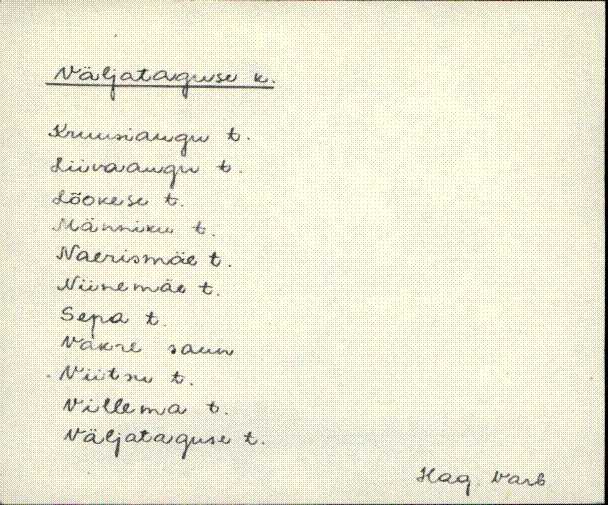 Väljataguse k.
Kruusiaugu t.
Liivaaugu t.
Lõokese t.
Männiku t.
Naerismäe t.
Niinemäe t.
Sepa t.
Vakre saun
Viitsu t.
Villema t.
Väljataguse t.
Hag. Varb